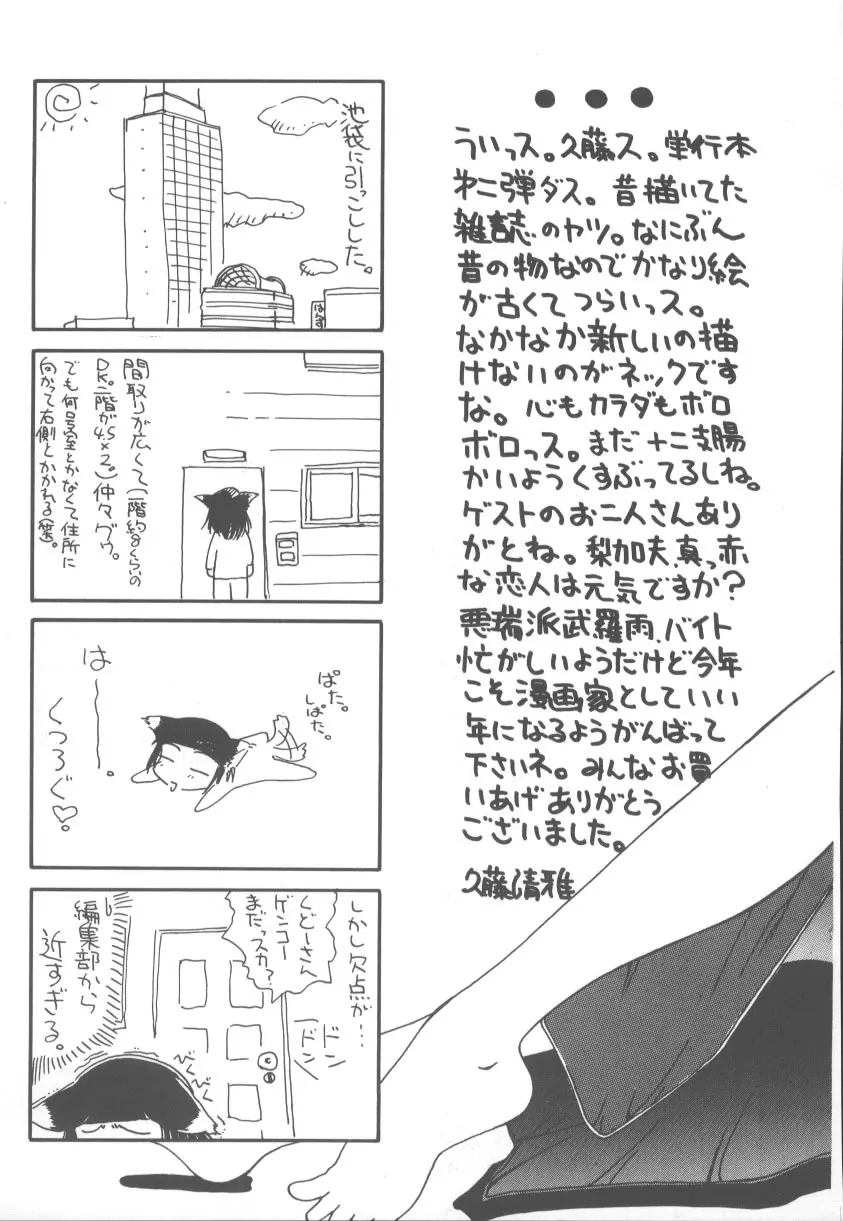 ういっス。久藤ス。単行本
第二弾ダス。昔描いてた
雑誌のヤツ。なにぶん
昔の物なのでかなり絵
が古くてつらいっス。
なかなか新しいの描
けないのがネックです
な。心もカラダもボロ
ボロっス。まだ十二支腸
かいようくすぶってるしね。
ゲストのお二人さんあり
がとね。梨加夫、真っ赤
な恋人は元気ですか?
悪瑞派武羅雨、バイト
忙がしいようだけど今年
こそ漫画家としていい
年になるようがんばって
下さいネ。みんなお買
いあげありがとう
ございました。
久藤清雅
池袋に引っこしした。
はんず
間取りが広くて(一階約8くらいの
DK。二階が4.5×2。)仲々グゥ。
でも何号室とかなくて住所に
向かって右側とかかれる(笑)。
はーー。
くつろぐ♡。
ぱた。
しぱた。
しかし欠点が…
くどーさん
ゲンコー
まだっスカ?
ドン
ドン
編集部から
近すぎる。
びくびく